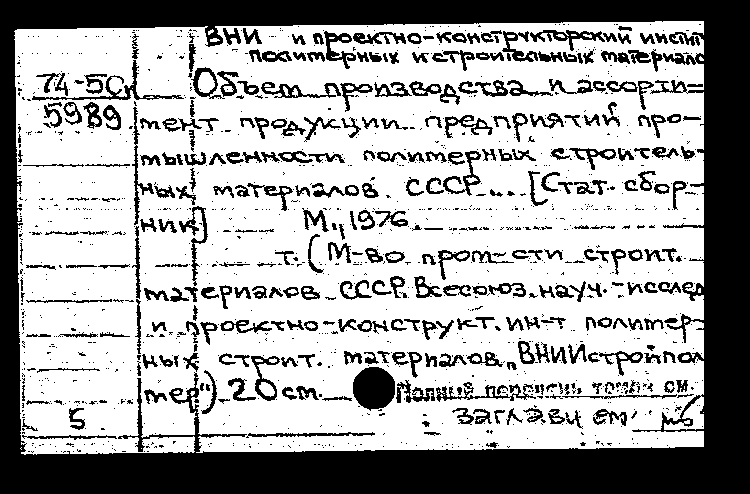 ВНИ и проектно-конструкторский инстит
полимерных и строительных материало
74-5Сл Объем производства и ассорти=
5989 мент продукции предприятий про-
мышленности полимерных строитель-
ных материалов СССР... [Стат. сбор-
ник] М., 1976.
т. (М-во пром-сти строит.
материалов СССР. Всесоюз. науч.-исслед
и проектно-конструкт. ин-т полимер-
ных строит. материалов „ВНИИстройпол
мер") 20 см. Полный перечень томов см.
5 : заглавием